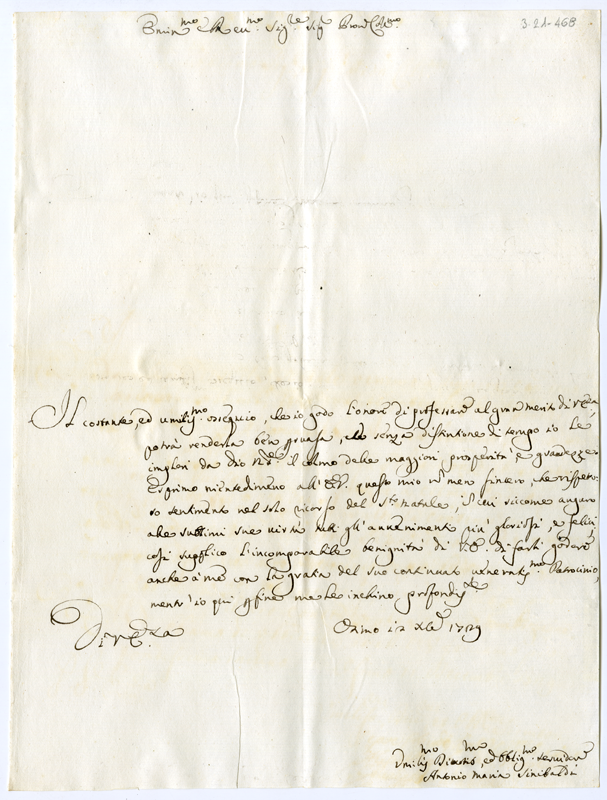 3-21-468
Emin.mo e Rev.mo Sig.re Sig.r Pron. Col.mo
Il costante, ed umiliss.mo ossequio, che io godo l'onore di professare al gran merito di V.Em.za
potrà renderla ben persuasa, che senza distintione di tempo io Le
implori da Dio N.ro il colmo delle maggiori prosperità e grandezze
Esprimo nientedimeno all' questo mio non men sincero, che rispetto-
so sentimento nel solo ricorso del S.to Natale, i cui siccome auguro
alle sublimi sue virtù tutti gli avvenimenti più gloriosi, e felici
così supplico l'incomparabile benignità di V.E. di farli godere
anche a me con la gratia del suo continuato veneratis.mo Patrocinio,
mentr'io qui per fine me le inchino, profondis.te
Di V.Em.za
Osimo 12 Xbre 1729
Umilis.mo Divotis.mo, ed Obblig.mo servidore
Antonio Maria Sinibaldi